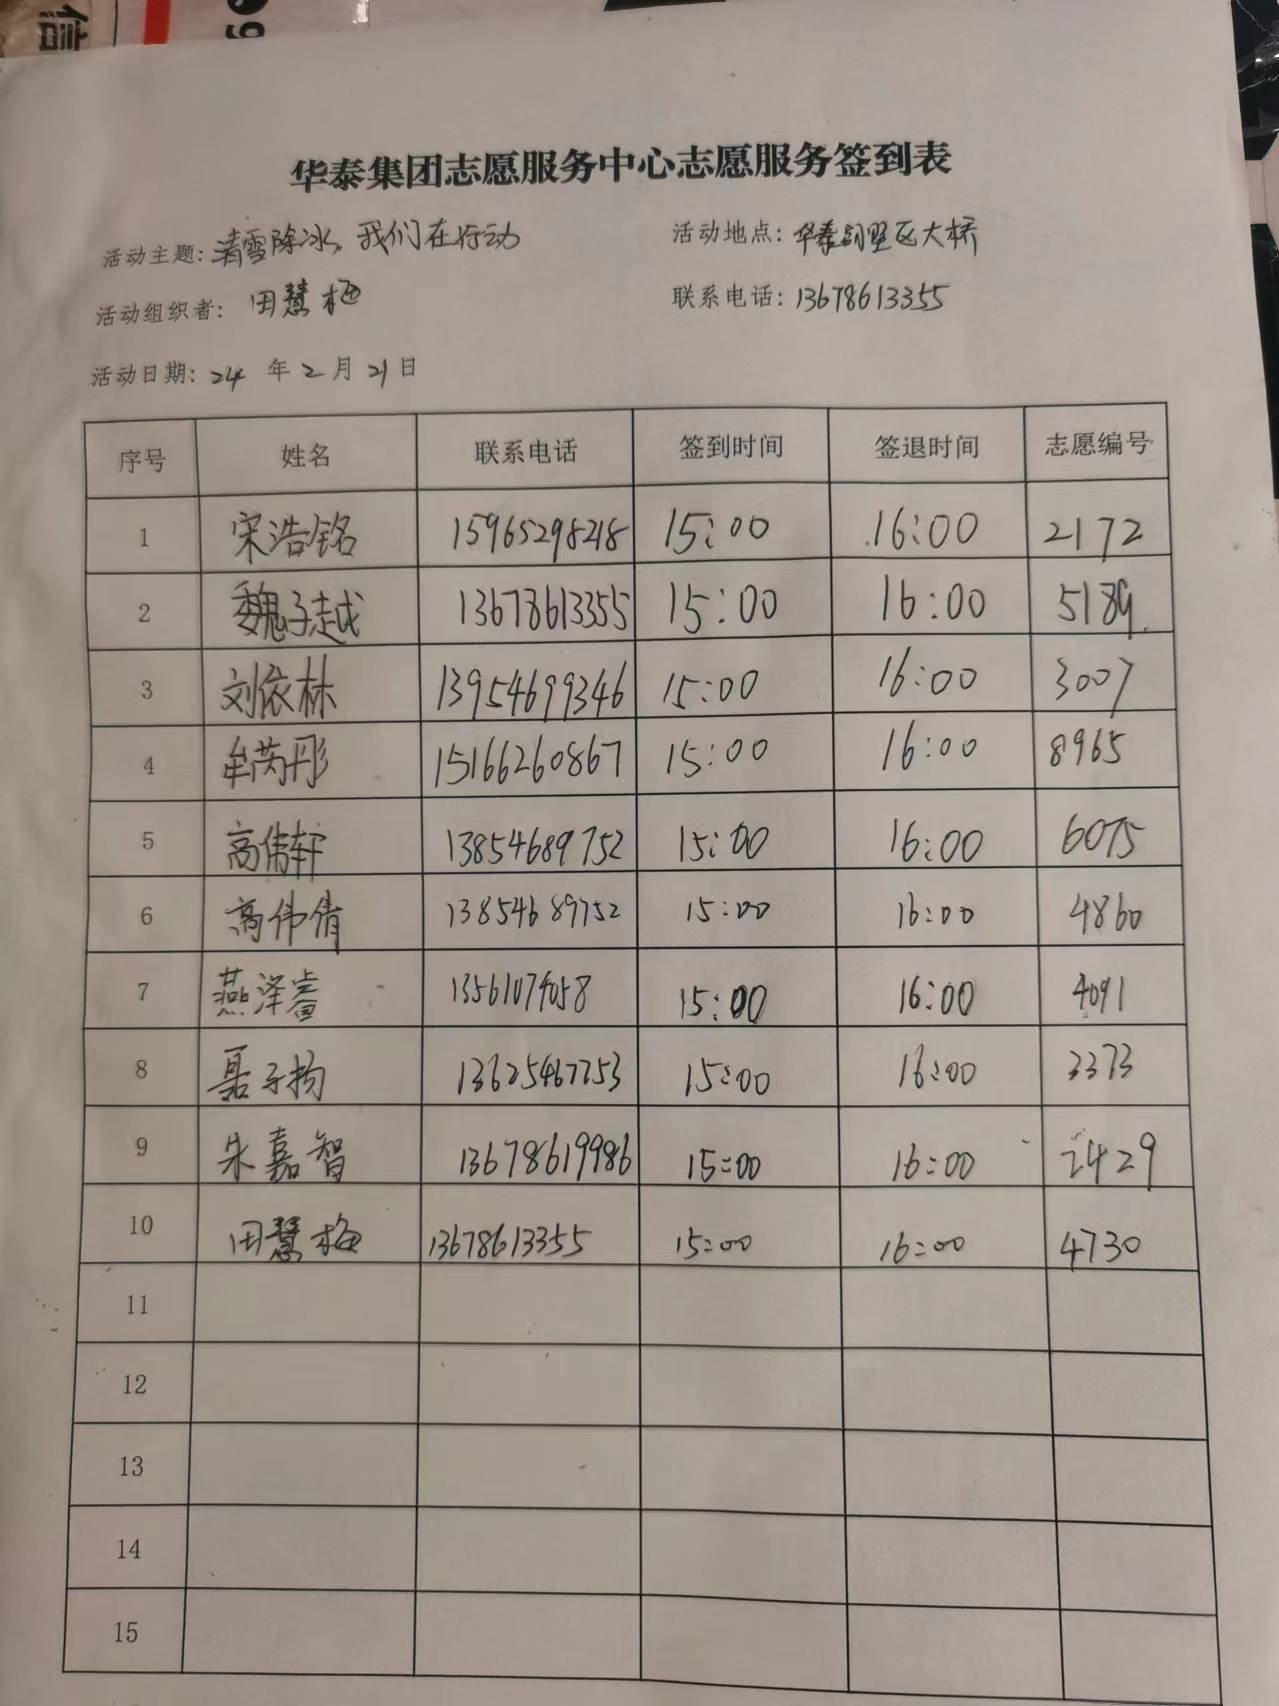 信
9
华泰集团志愿服务中心志愿服务签到表
活动主题：清雪除冰，我们在行动 活动地点：华泰别墅区大桥
活动组织者：田慧梅 联系电话：13678613355
活动日期：24年2月21日
序号 姓名 联系电话 签到时间 签退时间 志愿编号
1 宋浩铭 15965298218 15:00 16:00 2172
2 魏子越 13678613355 15:00 16:00 5189
3 刘依林 13954699346 15:00 16:00 3007
4 牟芮彤 15166260867 15:00 16:00 8965
5 高伟轩 13854689752 15:00 16:00 6075
6 高伟倩 13854689752 15:00 16:00 4860
7 燕泽睿 13561074058 15:00 16:00 4091
8 聂子扬 15:00 16:00 3373
9 朱嘉智 13678619986 15:00 16:00 2429
10 田慧梅 13678613355 15:00 16:00 4730
11
12
13
14
15